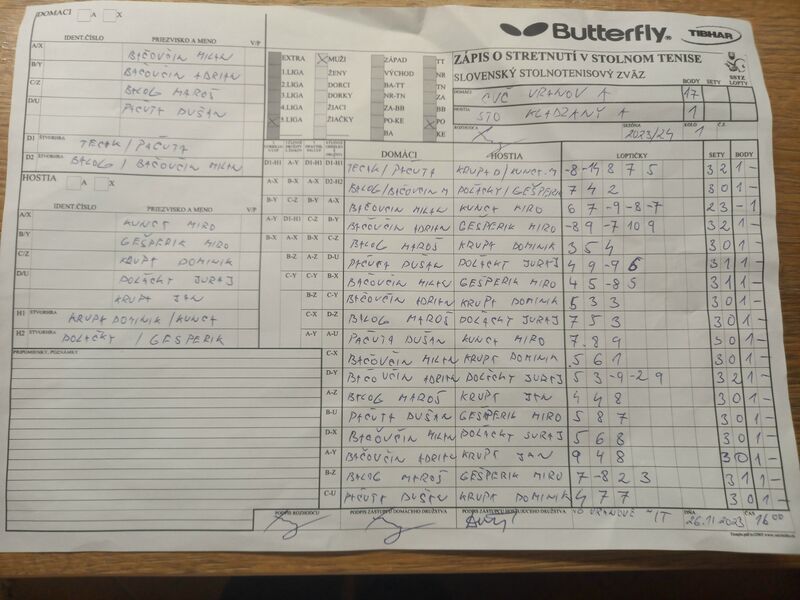 DOMACI A X
IDENT.ČÍSLO PRIEZVISKO A MENO V/P
A/X BAČOVČIN MILAN
B/Y BAČOVČIN ADRIAN
C/Z BALOG MAROŠ
D/U PAČUTA DUŠAN
D1 ŠTVORHRA TECAK/PAČUTA
D2 ŠTVORHRA BALOG/BAČOVČIN MILAN
HOSTIA A X
IDENT.ČÍSLO PRIEZVISKO A MENO V/P
A/X KUNCA MIRO
B/Y GEŠPERIK MIRO
C/Z KRUPA DOMINIK
D/U DOLÁČKY JURAJ
KRUPA JAN
H1 ŠTVORHRA KRUPA DOMINIK/KUNCA
H2 ŠTVORHRA DOLÁČKY /GEŠPERIK
PRIPOMIENKY, POZNÁMKY
EXTRA MUŽI ZÁPAD TT
1.LIGA ŽENY VÝCHOD NR
2.LIGA DORCI BA-TT TN
3.LIGA DORKY NR-TN ZA
4.LIGA ŽIACI ZA-BB BB
5.LIGA ŽIAČKY PO-KE PO
BA KE
Butterfly TIBHAR
ZÁPIS O STRETNUTÍ V STOLNOM TENISE
SLOVENSKÝ STOLNOTENISOVÝ ZVÄZ
SSTZ LOPTY
DOMÁCI CVČ VRANOV A BODY 17 SETY
HOSTIA STO KLADZANY A 1
ROZHODCA SEZÓNA 2023/24 KOLO 1 Č.Z.
DOMÁCI HOSTIA LOPTIČKY SETY BODY
D1-H1 A-Y D1-H1 D1-H1 TECAK/PAČUTA KRUPA D/KUNCA M -8 -14 8 7 5 3 2 1 -
A-X B-X A-X D2-H2 BALOG/BAČOVČIN M DOLÁČKY/GEŠPERIK 7 4 2 3 0 1 -
B-Y C-Z B-Y A-X BAČOVČIN MILAN KUNCA MIRO 6 7 -9 -8 -7 2 3 - 1
A-Y D1-H1 C-Z B-Y BAČOVČIN ADRIAN GEŠPERIK MIRO -8 9 -7 10 9 3 2 1 -
B-X A-X B-X C-Z BALOG MAROŠ KRUPA DOMINIK 3 5 4 3 0 1 -
B-Z A-Z D-U PAČUTA DUŠAN DOLÁČKY JURAJ 4 9 -9 6 3 1 1 -
C-Y C-Y B-X BAČOVČIN MILAN GEŠPERIK MIRO 4 5 -8 5 3 1 1 -
B-Z C-Y BAČOVČIN ADRIAN KRUPA DOMINIK 5 3 3 3 0 1 -
C-X D-Z BALOG MAROŠ DOLÁČKY JURAJ 7 5 3 3 0 1 -
A-Y A-U PAČUTA DUŠAN KUNCA MIRO 7 8 9 3 0 1 -
C-X BAČOVČIN MILAN KRUPA DOMINIK 5 6 1 3 0 1 -
D-Y BAČOVČIN ADRIAN DOLÁČKY JURAJ 5 3 -9 -2 9 3 2 1 -
A-Z BALOG MAROŠ KRUPA JAN 4 4 8 3 0 1 -
B-U PAČUTA DUŠAN GEŠPERIK MIRO 5 8 7 3 0 1 -
D-X BAČOVČIN MILAN DOLÁČKY JURAJ 5 6 8 3 0 1 -
A-Y BAČOVČIN ADRIAN KRUPA JAN 9 4 8 3 0 1 -
B-Z BALOG MAROŠ GEŠPERIK MIRO 7 -8 2 3 3 1 1 -
C-U PAČUTA DUŠAN KRUPA DOMINIK 4 7 7 3 0 1 -
PODPIS ROZHODCU PODPIS ZÁSTUPCU DOMÁCEHO DRUŽSTVA PODPIS ZÁSTUPCU HOSŤUJÚCEHO DRUŽSTVA VO VRANOVE n/T DŇA 26.11.2023 ČAS 16 00